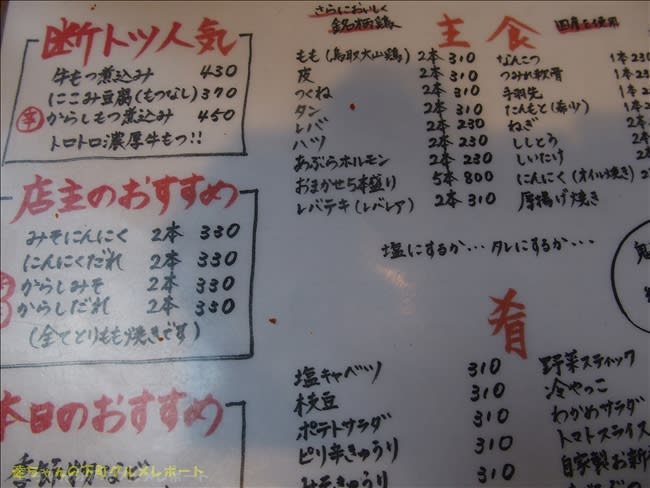 断トツ人気
牛もつ煮込み 430
にこみ豆腐(もつなし) 370
辛 からしもつ煮込み 450
トロトロ濃厚牛もつ!!
店主のおすすめ
みそにんにく 2本 330
にんにくだれ 2本 330
からしみそ 2本 330
からしだれ 2本 330
(全てとりもも焼きです)
本日のおすすめ
さらにおいしく
銘柄鶏
主食
国産を使用
もも(鳥取大山鶏) 2本 310
皮 2本 310
つくね 2本 310
タン 2本 310
レバ 2本 230
ハツ 2本 230
あぶらホルモン 2本 230
おまかせ5本盛り 5本 800
レバテキ(レバレア) 2本 310
なんこつ 1本 230
つみれ軟骨 1本
手羽先 1本
たんもと(希少) 1本
ねぎ 2本
ししとう 2本
しいたけ 2本
にんにく(オイル焼き) 2
厚揚げ焼き
塩にするか…タレにするか…
肴
塩キャベツ 310
枝豆 310
ポテトサラダ 310
ピリ辛きゅうり 310
みそきゅうり 310
野菜スティック
冷やっこ
わかめサラダ
トマトスライス
自家製お新
愛ちゃんの下町グルメレポート